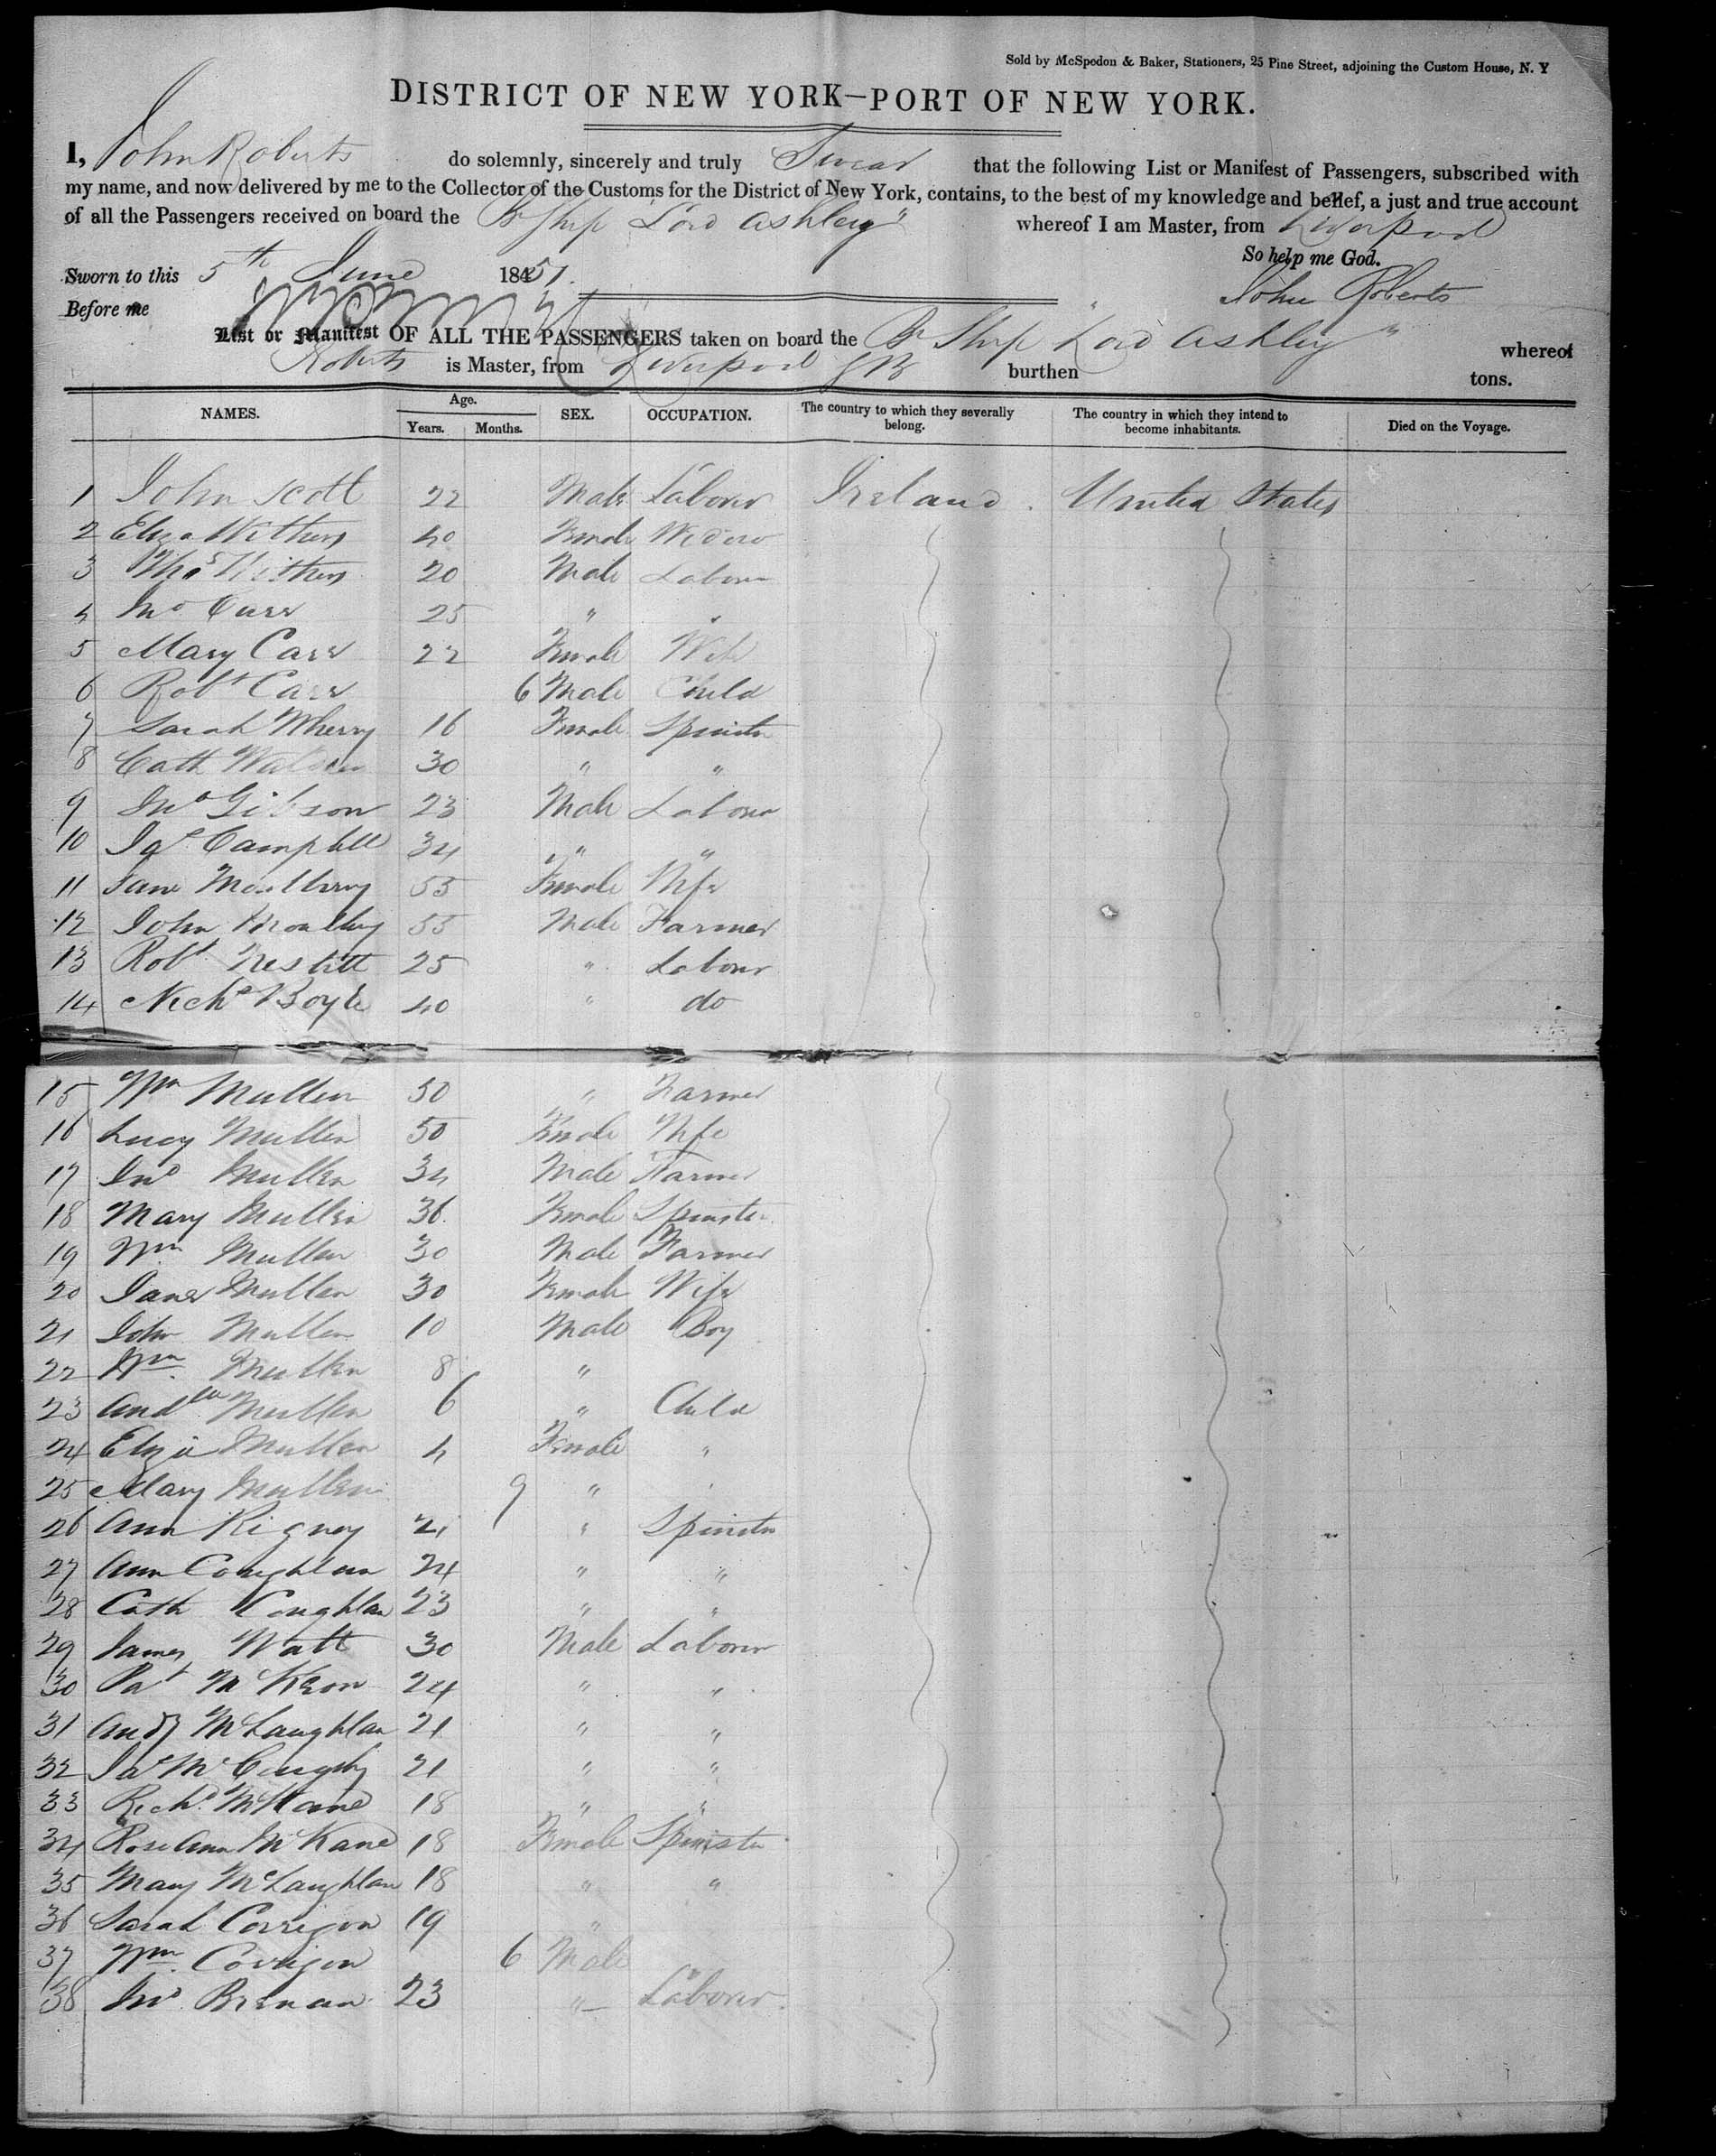 Sold by McSpedon & Baker, Stationers, 25 Pine Street, adjoining the Custom House, N. Y
DISTRICT OF NEW YORK—PORT OF NEW YORK.
I, John Roberts do solemnly, sincerely and truly Swear that the following List or Manifest of Passengers, subscribed with
my name, and now delivered by me to the Collector of the Customs for the District of New York, contains, to the best of my knowledge and belief, a just and true account
of all the Passengers received on board the Br Ship "Lord Ashley" whereof I am Master, from Liverpool
So help me God.
Sworn to this 5th June 1851.
John Roberts
Before me
List or Manifest OF ALL THE PASSENGERS taken on board the Br Ship "Lord Ashley" whereof
Roberts is Master, from Liverpool GB burthen tons.
NAMES. Age. Years. Months. SEX. OCCUPATION. The country to which they severally belong. The country in which they intend to become inhabitants. Died on the Voyage.
1 John Scott 22 Male Laborer Ireland. United States
2 Eliza Withers 40 Female Widow
3 Thos Withers 20 Male Laborer
4 Jno Carr 25 " "
5 Mary Carr 22 Female Wife
6 Robt Carr 6 Male Child
7 Sarah Wherry 16 Female Spinster
8 Cath 30 " "
9 Jno Gibson 23 Male Laborer
10 Jas Campbell 34 " "
11 Jane 55 Female Wife
12 John 55 Male Farmer
13 Robt Nesbitt 25 " Laborer
14 Nichs Boyle 40 " do
15 Wm Mullen 50 " Farmer
16 Lucy Mullen 50 Female Wife
17 Jno Mullen 34 Male Farmer
18 Mary Mullen 36 Female Spinster
19 Wm Mullen 30 Male Farmer
20 Jane Mullen 30 Female Wife
21 John Mullen 10 Male Boy
22 Wm Mullen 8 "
23 Andw Mullen 6 " Child
24 Eliza Mullen 4 Female "
25 Mary Mullen 9 " "
26 Ann Rigney 21 " Spinster
27 Ann Coughlan 24 " "
28 Cath Coughlan 23 " "
29 James Watt 30 Male Laborer
30 Pat McKeon 24 " "
31 Andw McLaughlan 21 " "
32 Jas 21 " "
33 Richd McKane 18 " "
34 Rose Ann McKane 18 Female Spinster
35 Mary McLaughlan 18 " "
36 Sarah Corrigon 19 "
37 Wm Corrigon 6 Male
38 Jno Brenan 23 " Laborer